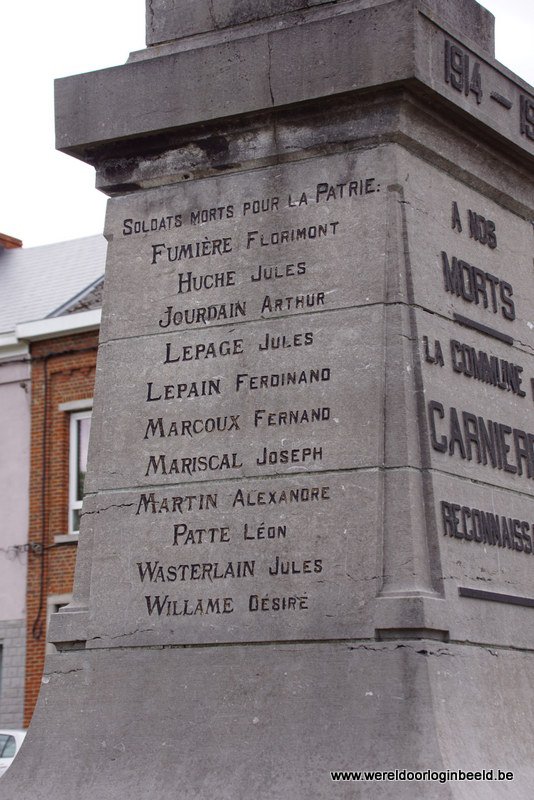 SOLDATS MORTS POUR LA PATRIE:
FUMIÈRE FLORIMONT
HUCHE JULES
JOURDAIN ARTHUR
LEPAGE JULES
LEPAIN FERDINAND
MARCOUX FERNAND
MARISCAL JOSEPH
MARTIN ALEXANDRE
PATTE LÉON
WASTERLAIN JULES
WILLAME DÉSIRE
1914 – 19
A NOS
MORTS
LA COMMUNE
CARNIERE
RECONNAISS
www.wereldoorloginbeeld.be